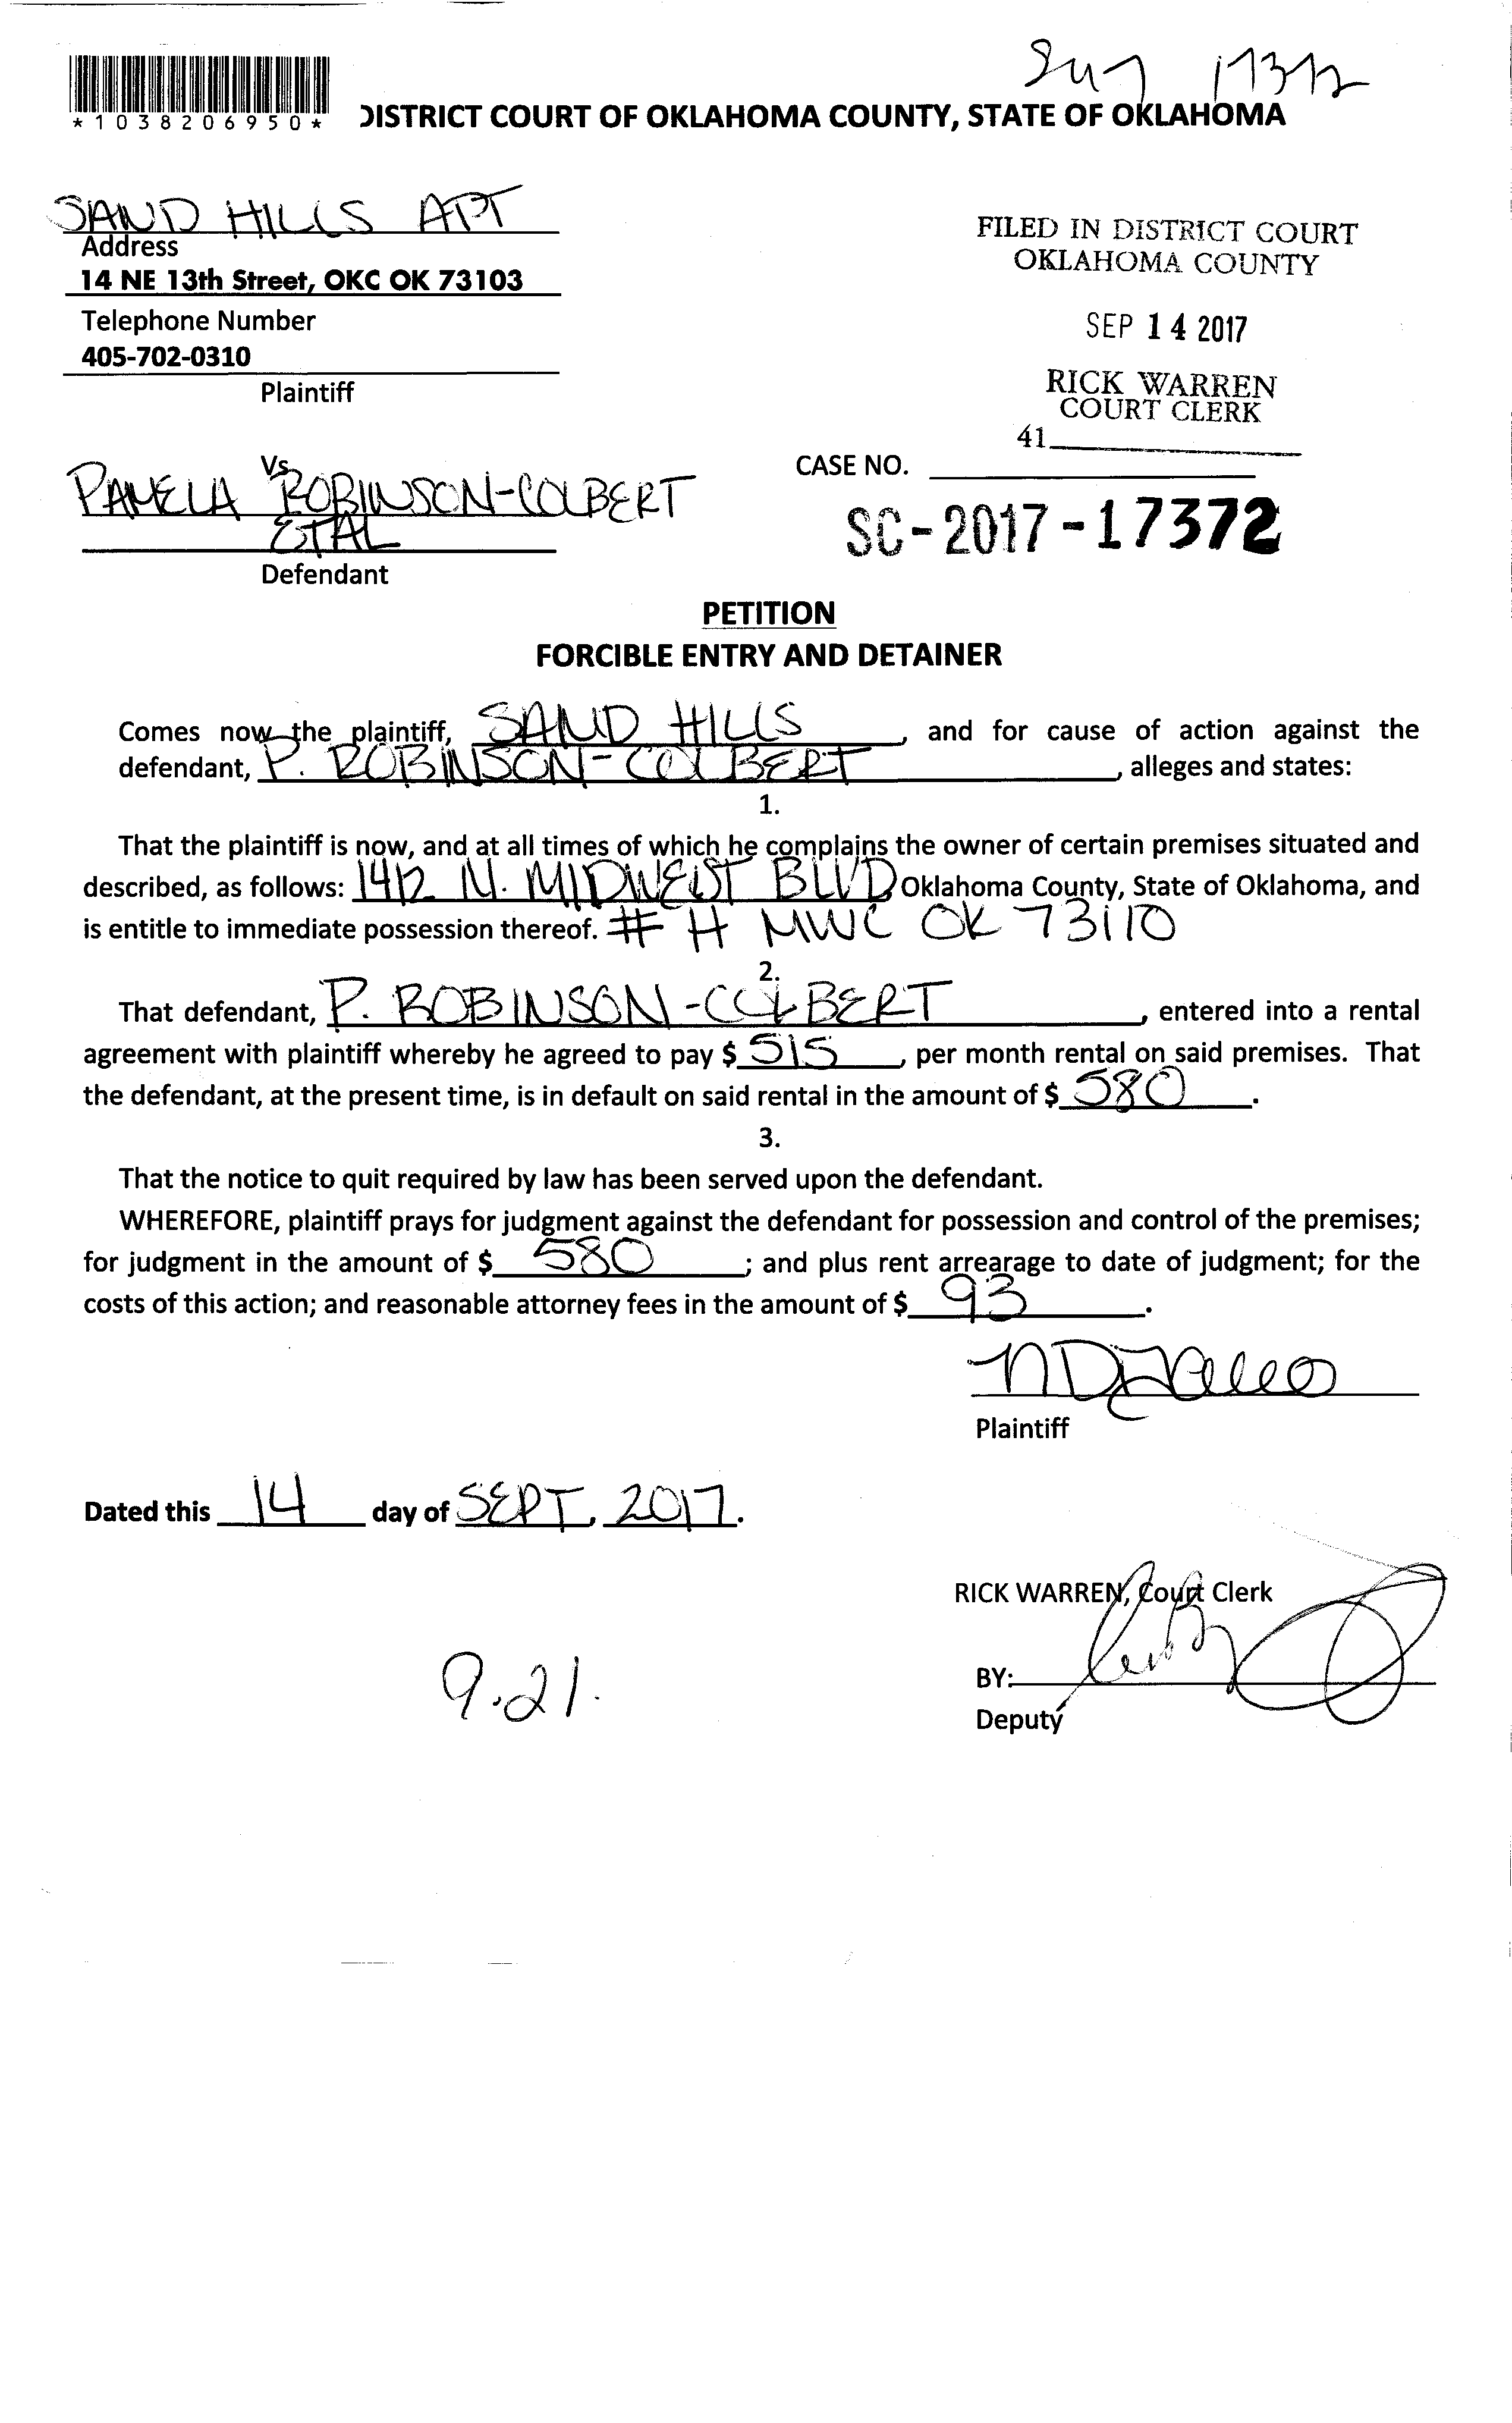 *1038206950*
DISTRICT COURT OF OKLAHOMA COUNTY, STATE OF OKLAHOMA
SAND HILLS APT
Address
14 NE 13th Street, OKC OK 73103
Telephone Number
405-702-0310
Plaintiff
FILED IN DISTRICT COURT
OKLAHOMA COUNTY
SEP 14 2017
RICK WARREN
COURT CLERK
41
Vs
PAMELA ROBINSON-COLBERT
ETAL
Defendant
CASE NO.
SC-2017-17372
PETITION
FORCIBLE ENTRY AND DETAINER
Comes now the plaintiff, SAND HILLS, and for cause of action against the
defendant, P. ROBINSON-COLBERT, alleges and states:
1.
That the plaintiff is now, and at all times of which he complains the owner of certain premises situated and
described, as follows: 1412 N. MIDWEST BLVD Oklahoma County, State of Oklahoma, and
is entitle to immediate possession thereof. # H MWC OK 73110
2.
That defendant, P. ROBINSON-COLBERT, entered into a rental
agreement with plaintiff whereby he agreed to pay $ 515, per month rental on said premises. That
the defendant, at the present time, is in default on said rental in the amount of $ 580.
3.
That the notice to quit required by law has been served upon the defendant.
WHEREFORE, plaintiff prays for judgment against the defendant for possession and control of the premises;
for judgment in the amount of $ 580; and plus rent arrearage to date of judgment; for the
costs of this action; and reasonable attorney fees in the amount of $ 93.
Plaintiff
Dated this 14 day of SEPT, 2017.
RICK WARREN, Court Clerk
9.21.
BY:
Deputy